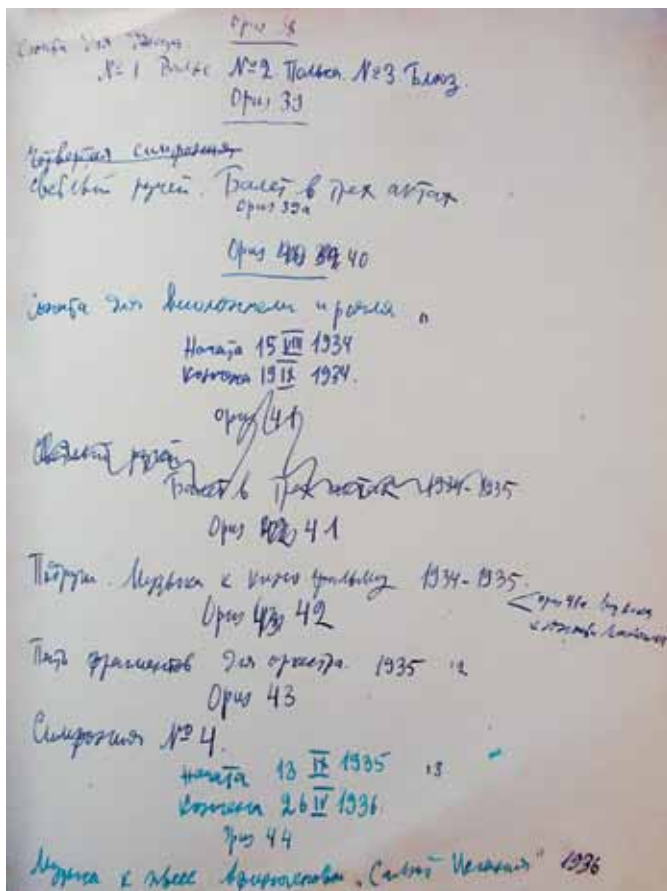 Опус 38
Сюита для Джаза.
№ 1 Вальс №2 Полька. №3 Блюз.
Опус 39
Четвертая симфония
Светлый ручей. Балет в трех актах
Опус 39а
Опус 40
Соната для виолончели и рояля
Начата 15 VIII 1934
Кончена 19 IX 1934.
Опус 41
Светлый ручей
Балет в трех актах 1934-1935
Опус 42 41
Подруги. Музыка к кинофильму 1934-1935.
Опус 43 42
опус 41а Музыка
Пять фрагментов для оркестра. 1935
Опус 43
Симфония № 4.
Начата 13 IX 1935
Кончена 26 IV 1936
Опус 44
Музыка к пьесе "Салют Испания" 1936